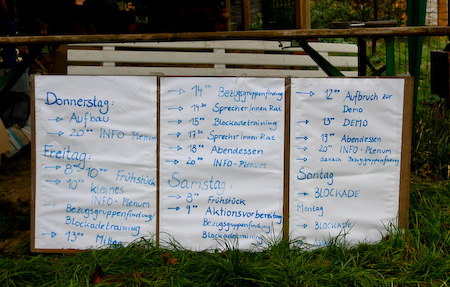 Donnerstag:
→ Aufbau
→ 20⁰⁰ INFO-Plenum
Freitag:
→ 8⁰⁰-10⁰⁰ Frühstück
→ 10⁰⁰ kleines
INFO-Plenum
Bezugsgruppenfindung/
Blockadetraining
→ 13⁰⁰
→ 14⁰⁰ Bezugsgruppenfindung
→ 14³⁰ SprecherInnen Rat
→ 15⁰⁰ Blockadetraining
→ 17³⁰ SprecherInnen Rat
→ 18⁰⁰ Abendessen
→ 20⁰⁰ INFO-PLENUM
Samstag:
→ 8⁰⁰ Frühstück
→ 9⁰⁰ Aktionsvorbereitung
Bezugsgruppenfindung
Blockadetraining
→ 12⁰⁰ Aufbruch zur
DEMO
→ 13⁰⁰ DEMO
→ 19⁰⁰ Abendessen
→ 20⁰⁰ INFO-PLENUM
danach Bezugsgruppenfindung
Sonntag
→ BLOCKADE
Montag
→ BLOCKADE